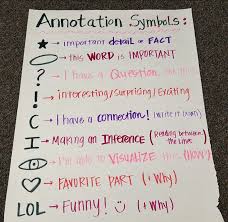 Annotation Symbols:
★ → important detail or FACT
→ this WORD is IMPORTANT
? → I have a Question
! → interesting/Surprising/Exciting
C → I have a connection! (write it down)
I → Making an Inference (Reading between the lines)
→ I'm able to VISUALIZE this (HOW)
♡ → FAVORITE PART (+Why)
LOL → Funny! ☺ (+Why)